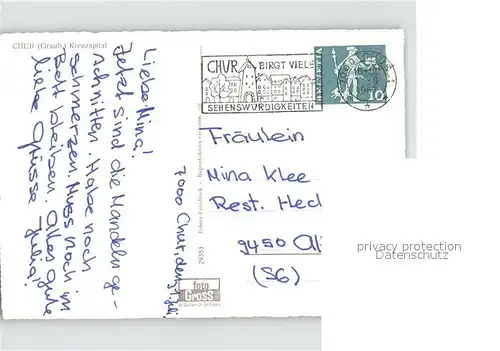 CHUR (Graub.) Kreuzspital
Liebe Nina!
Jetzt sind die Mandeln ge-
schnitten. Habe noch
Schmerzen. Muss noch im
Bett bleiben. Alles gute
liebe Grüsse Julia!
7000 Chur, den
29353
foto
GROSS
CHUR BIRGT VIELE
SEHENSWÜRDIGKEITEN
HELVETIA
10
Fräulein
Nina Klee
Rest. Hec
9450 Al
(SG)
privacy protection
Datenschutz